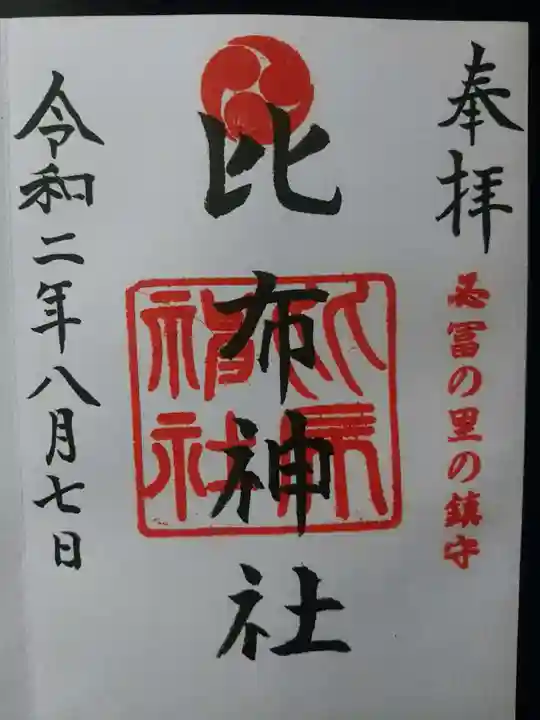 奉拝
冨の里の鎮守
比布神社
令和二年八月七日